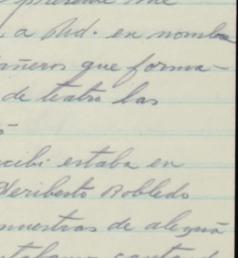 presente me
a Ud. en nombre
añeros que forma-
de teatro las

ecibi estaba en
Heriberto Robledo
muestras de alegria